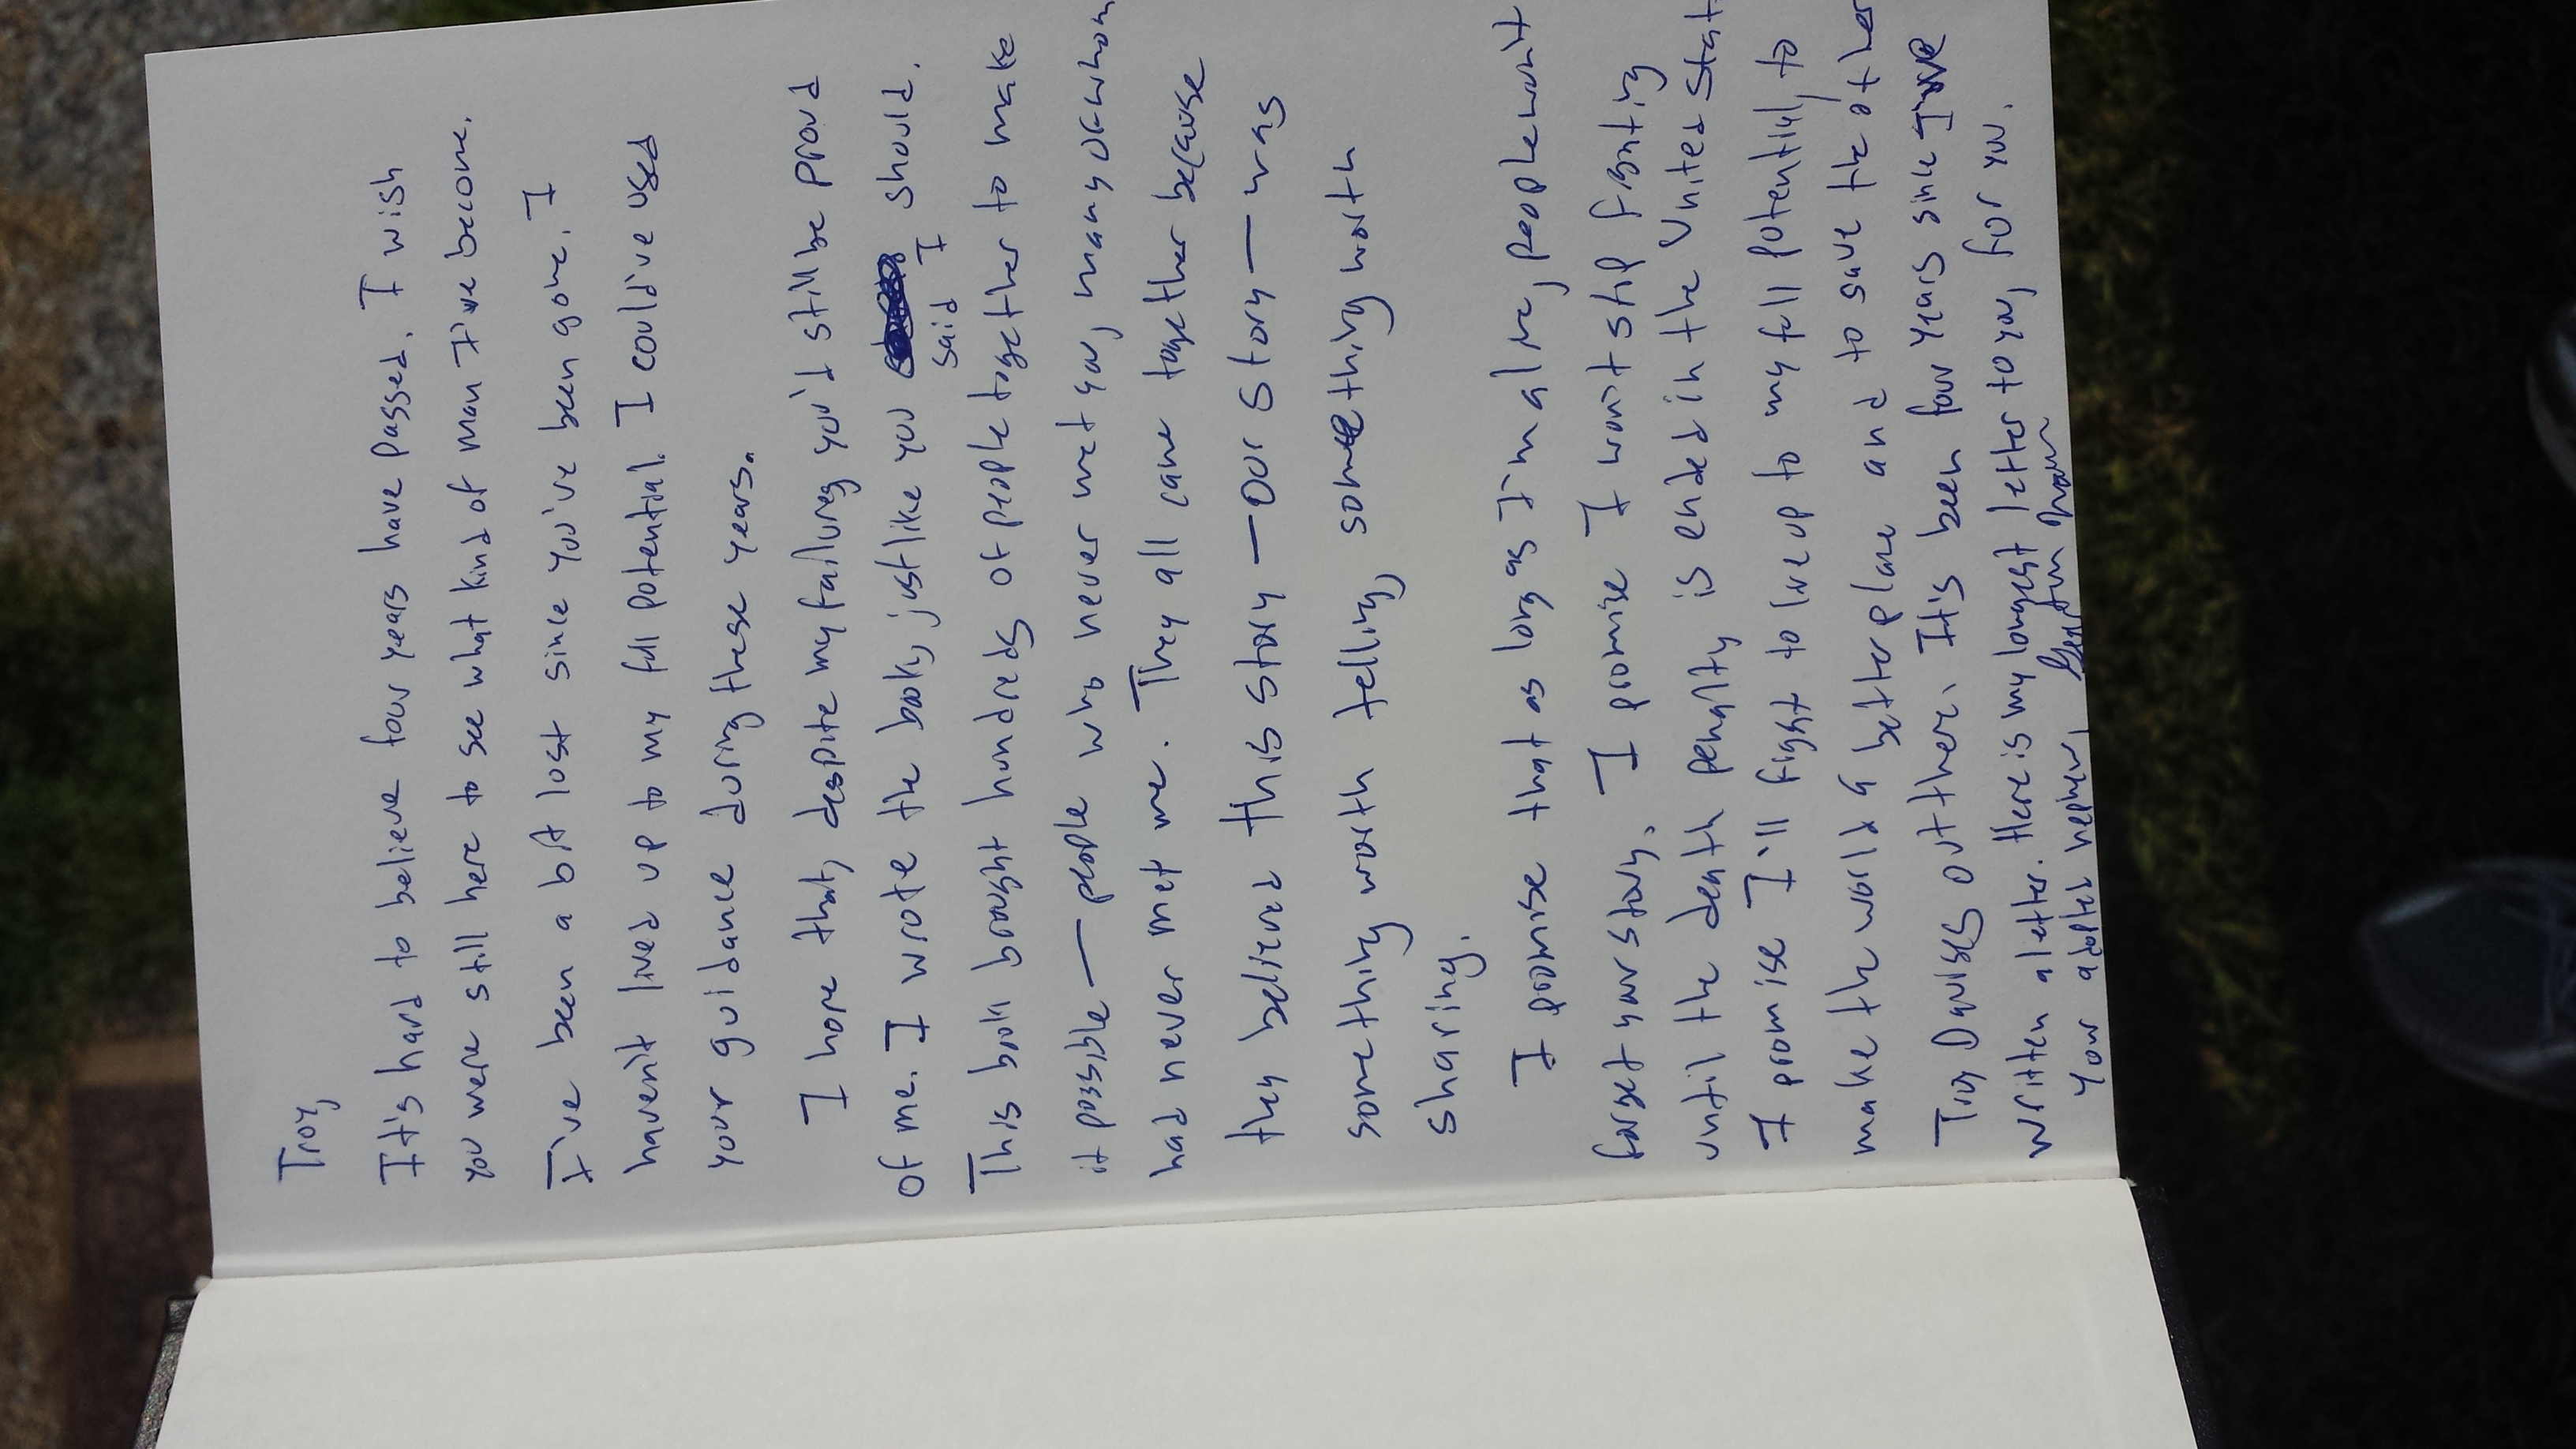 Troy,
It's hard to believe four years have passed. I wish
you were still here to see what kind of man I've become.
I've been a bit lost since you've been gone. I
haven't lived up to my full potential. I could've used
your guidance during these years.
I hope that, despite my failures, you'd still be proud
of me. I wrote the book, just like you said I should.
This book brought hundreds of people together to make
it possible — people who never met you, many of whom
had never met me. They all came together because
they believed this story — our story — was
something worth telling, something worth
sharing.
I promise that as long as I'm alive, people won't
forget your story. I promise I won't stop fighting
until the death penalty is ended in the United Stat
I promise I'll fight to live up to my full potential, to
make the world a better place and to save the other
Troy Davises out there. It's been four years since I've
written a letter. Here is my longest letter to you, for you.
Your adopted nephew,